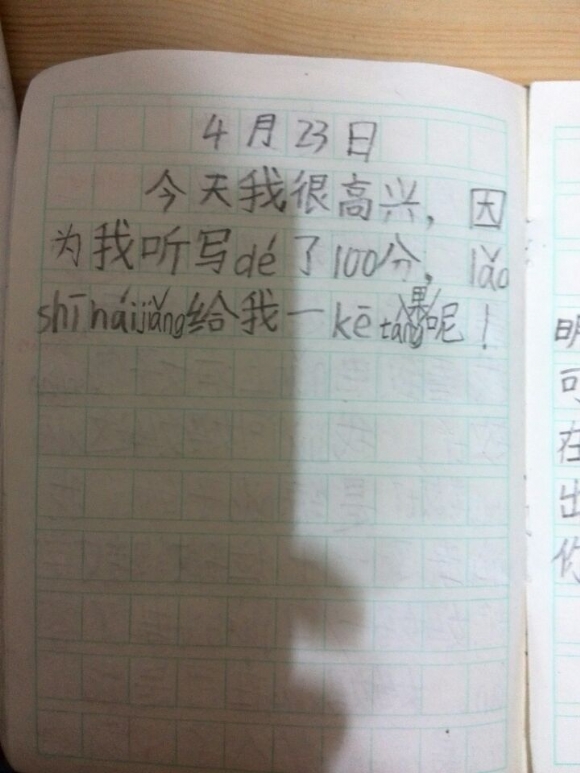 4月23日
今天我很高兴，因
为我听写dé了100分，lǎo
shī háijiǎng给我一kē táng呢！
明
可
在
出
你